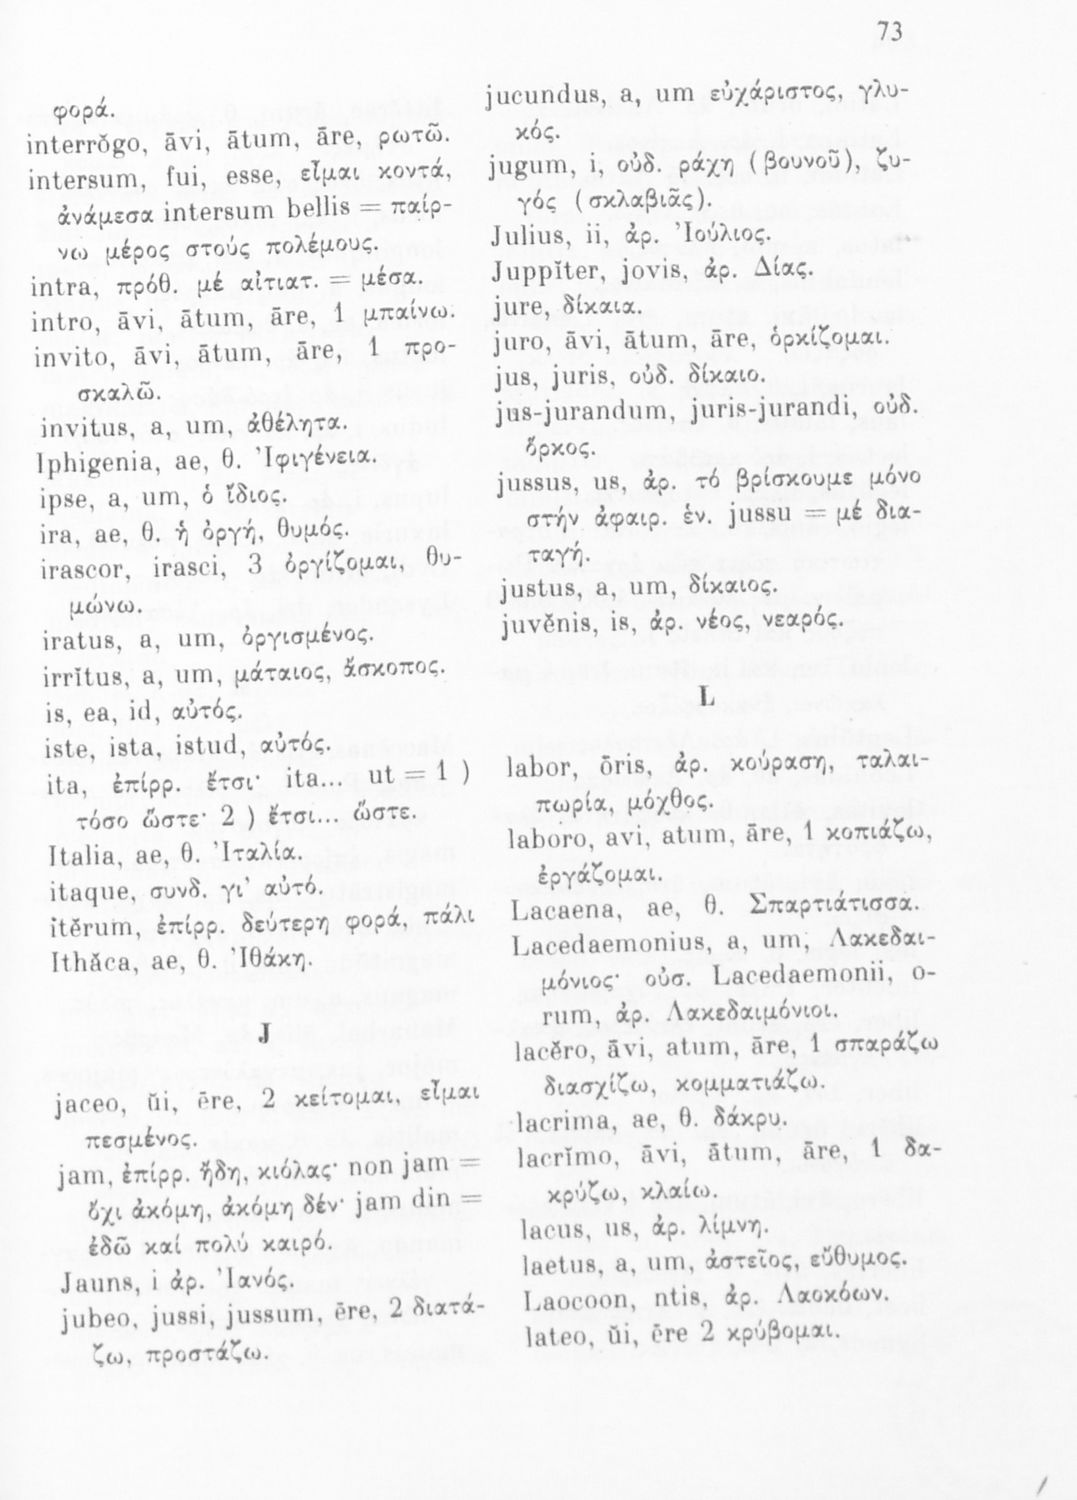 73
φορά.
interrŏgo, āvi, ātum, āre, ρωτῶ.
intersum, fui, esse, εἶμαι κοντά,
ἀνάμεσα intersum bellis = παίρ-
νω μέρος στούς πολέμους.
intra, πρόθ. μέ αἰτιατ. = μέσα.
intro, āvi, ātum, āre, 1 μπαίνω.
invito, āvi, ātum, āre, 1 προ-
σκαλῶ.
invitus, a, um, ἀθέλητα.
Iphigenia, ae, θ. Ἰφιγένεια.
ipse, a, um, ὁ ἴδιος.
ira, ae, θ. ἡ ὀργή, θυμός.
irascor, irasci, 3 ὀργίζομαι, θυ-
μώνω.
iratus, a, um, ὀργισμένος.
irrĭtus, a, um, μάταιος, ἄσκοπος.
is, ea, id, αὐτός.
iste, ista, istud, αὐτός.
ita, ἐπίρρ. ἔτσι· ita... ut = 1 )
τόσο ὥστε· 2 ) ἔτσι... ὥστε.
Italia, ae, θ. Ἰταλία.
itaque, συνδ. γι' αὐτό.
itĕrum, ἐπίρρ. δεύτερη φορά, πάλι
Ithăca, ae, θ. Ἰθάκη.
J
jaceo, ŭi, ēre, 2 κείτομαι, εἶμαι
πεσμένος.
jam, ἐπίρρ. ἤδη, κιόλας· non jam =
ὄχι ἀκόμη, ἀκόμη δέν· jam din =
ἐδῶ καί πολύ καιρό.
Jauns, i ἀρ. Ἰανός.
jubeo, jussi, jussum, ēre, 2 διατά-
ζω, προστάζω.
jucundus, a, um εὐχάριστος, γλυ-
κός.
jugum, i, οὐδ. ράχη (βουνοῦ), ζυ-
γός (σκλαβιᾶς).
Julius, ii, ἀρ. Ἰούλιος.
Juppĭter, jovis, ἀρ. Δίας.
jure, δίκαια.
juro, āvi, ātum, āre, ὁρκίζομαι.
jus, juris, οὐδ. δίκαιο.
jus-jurandum, juris-jurandi, οὐδ.
ὅρκος.
jussus, us, ἀρ. τό βρίσκουμε μόνο
στήν ἀφαιρ. ἑν. jussu = μέ δια-
ταγή.
justus, a, um, δίκαιος.
juvĕnis, is, ἀρ. νέος, νεαρός.
L
labor, ōris, ἀρ. κούραση, ταλαι-
πωρία, μόχθος.
laboro, avi, atum, āre, 1 κοπιάζω,
ἐργάζομαι.
Lacaena, ae, θ. Σπαρτιάτισσα.
Lacedaemonius, a, um, Λακεδαι-
μόνιος· οὐσ. Lacedaemonii, o-
rum, ἀρ. Λακεδαιμόνιοι.
lacĕro, āvi, atum, āre, 1 σπαράζω
διασχίζω, κομματιάζω.
lacrima, ae, θ. δάκρυ.
lacrĭmo, āvi, ātum, āre, 1 δα-
κρύζω, κλαίω.
lacus, us, ἀρ. λίμνη.
laetus, a, um, ἀστεῖος, εὔθυμος.
Laocoon, ntis, ἀρ. Λαοκόων.
lateo, ŭi, ēre 2 κρύβομαι.